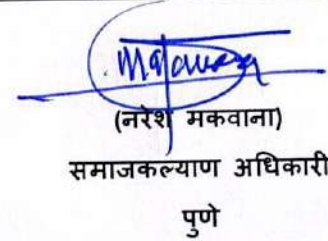 (नरेश मकवाना)
समाजकल्याण अधिकारी
पुणे